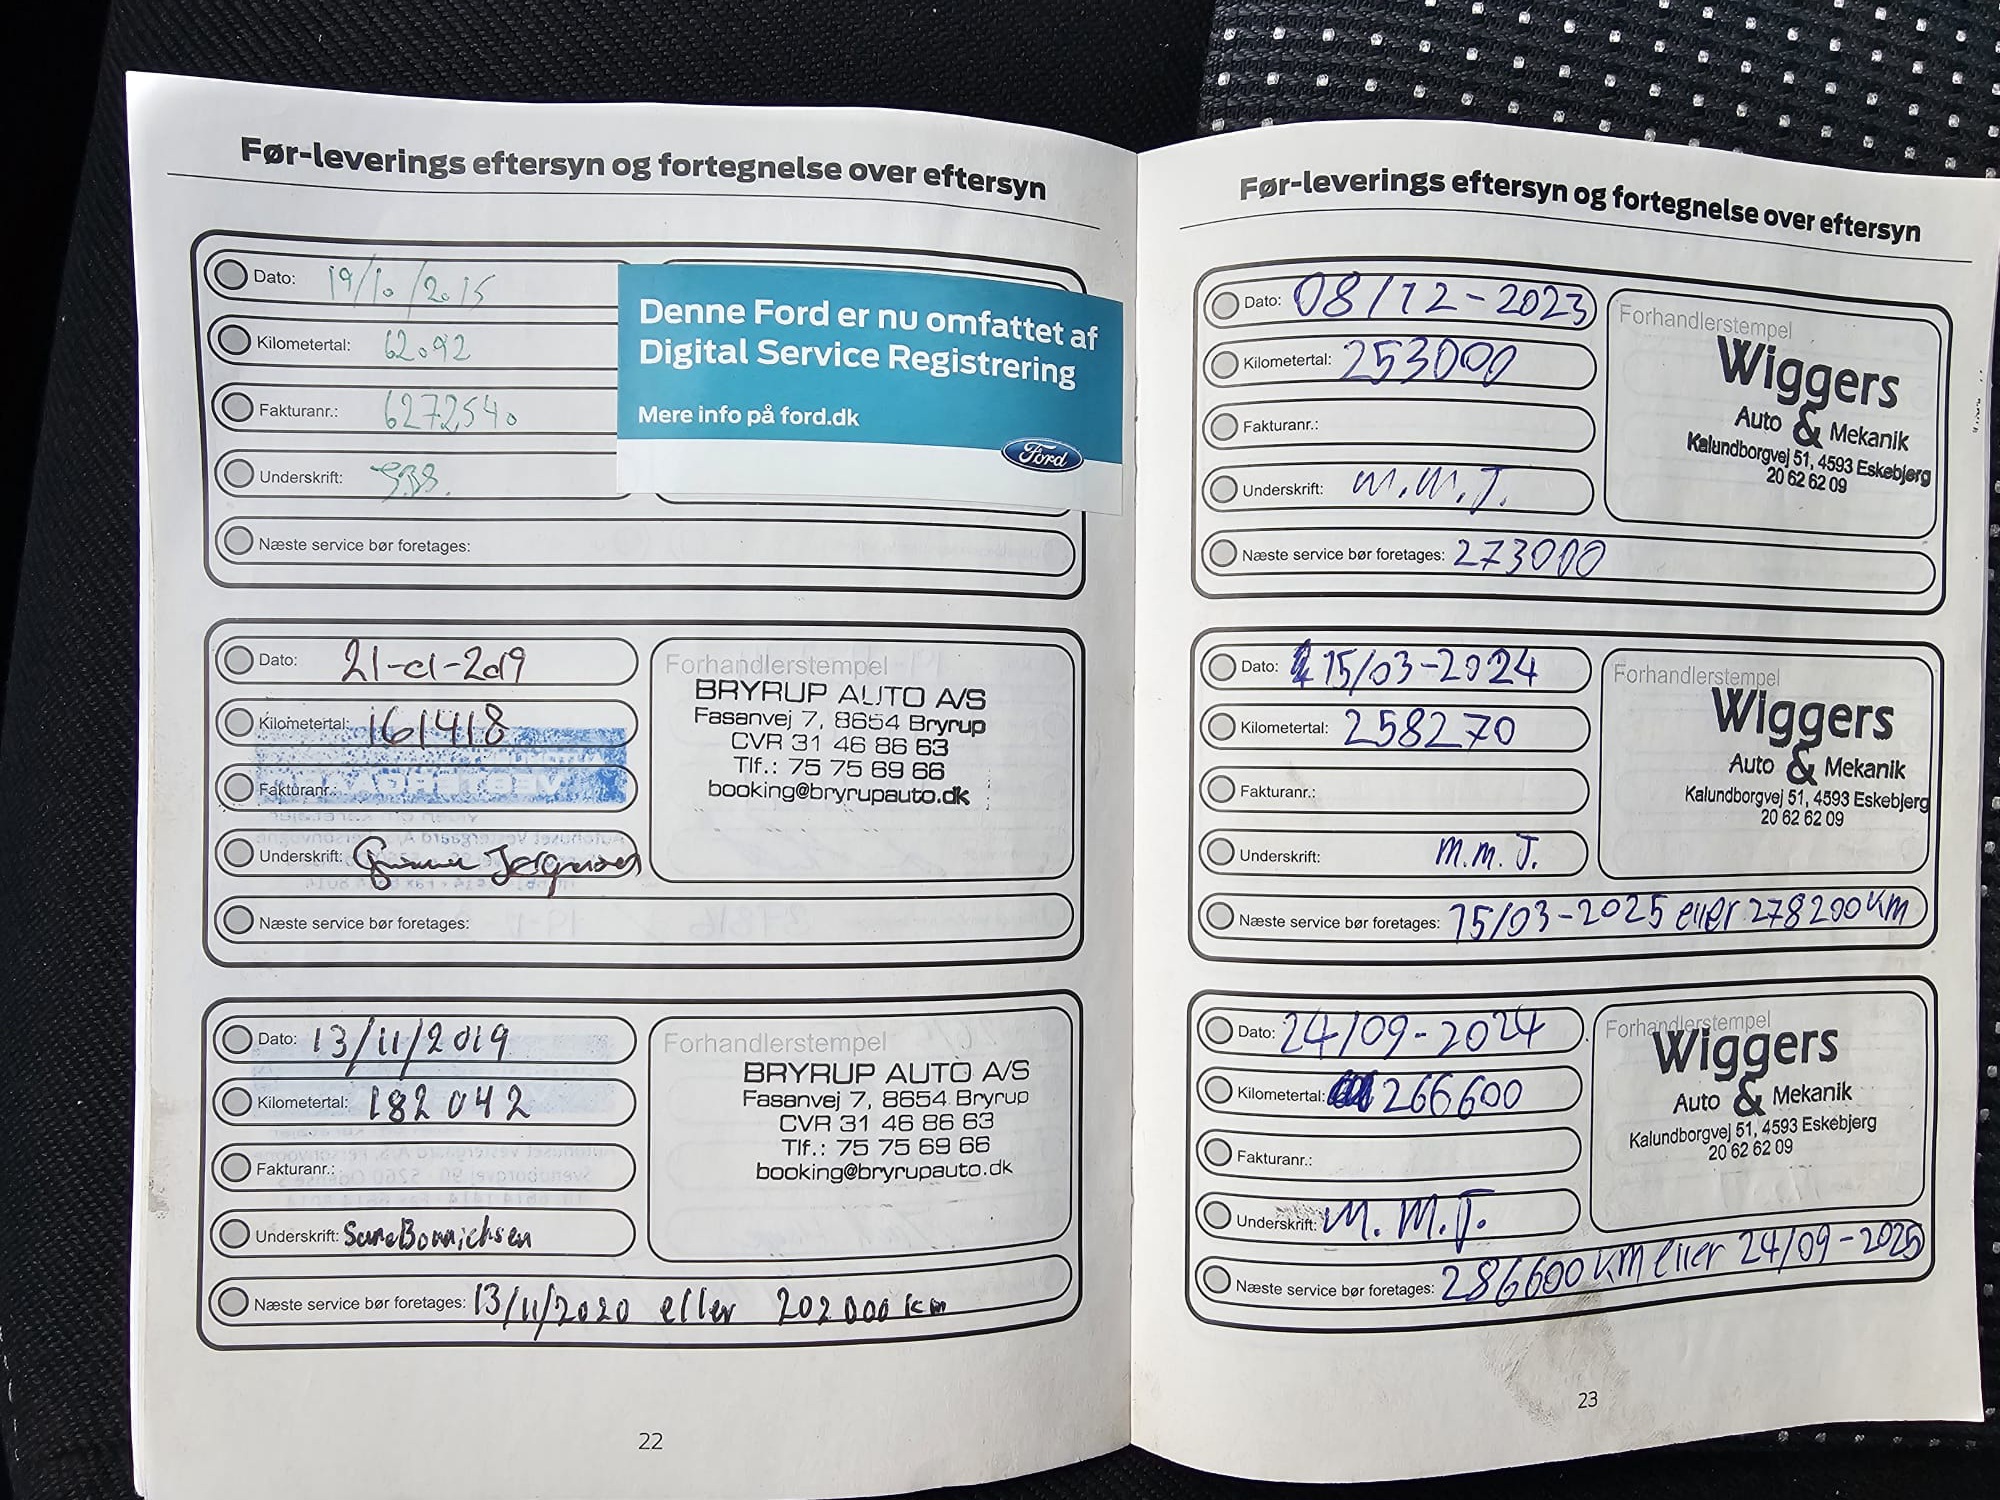 Før-leverings eftersyn og fortegnelse over eftersyn
Dato: 19/10/2015
Kilometertal: 62092
Fakturanr.: 6272540
Underskrift:
Næste service bør foretages:
Denne Ford er nu omfattet af
Digital Service Registrering
Mere info på ford.dk
Ford
Dato: 21-01-2019
Kilometertal: 161418
Fakturanr.:
Underskrift:
Næste service bør foretages:
Forhandlerstempel
BRYRUP AUTO A/S
Fasanvej 7, 8654 Bryrup
CVR 31 46 86 63
Tlf.: 75 75 69 66
booking@bryrupauto.dk
Dato: 13/11/2019
Kilometertal: 182042
Fakturanr.:
Underskrift:
Næste service bør foretages: 13/11/2020 eller 202000 km
Forhandlerstempel
BRYRUP AUTO A/S
Fasanvej 7, 8654 Bryrup
CVR 31 46 86 63
Tlf.: 75 75 69 66
booking@bryrupauto.dk
22
Før-leverings eftersyn og fortegnelse over eftersyn
Dato: 08/12-2023
Kilometertal: 253000
Fakturanr.:
Underskrift: M.M.J.
Næste service bør foretages: 273000
Forhandlerstempel
Wiggers
Auto & Mekanik
Kalundborgvej 51, 4593 Eskebjerg
20 62 62 09
Dato: 15/03-2024
Kilometertal: 258270
Fakturanr.:
Underskrift: M.M.J.
Næste service bør foretages: 15/03-2025 eller 278200 KM
Forhandlerstempel
Wiggers
Auto & Mekanik
Kalundborgvej 51, 4593 Eskebjerg
20 62 62 09
Dato: 24/09-2024
Kilometertal: 266600
Fakturanr.:
Underskrift: M.M.J.
Næste service bør foretages: 286600 KM eller 24/09-2025
Forhandlerstempel
Wiggers
Auto & Mekanik
Kalundborgvej 51, 4593 Eskebjerg
20 62 62 09
23